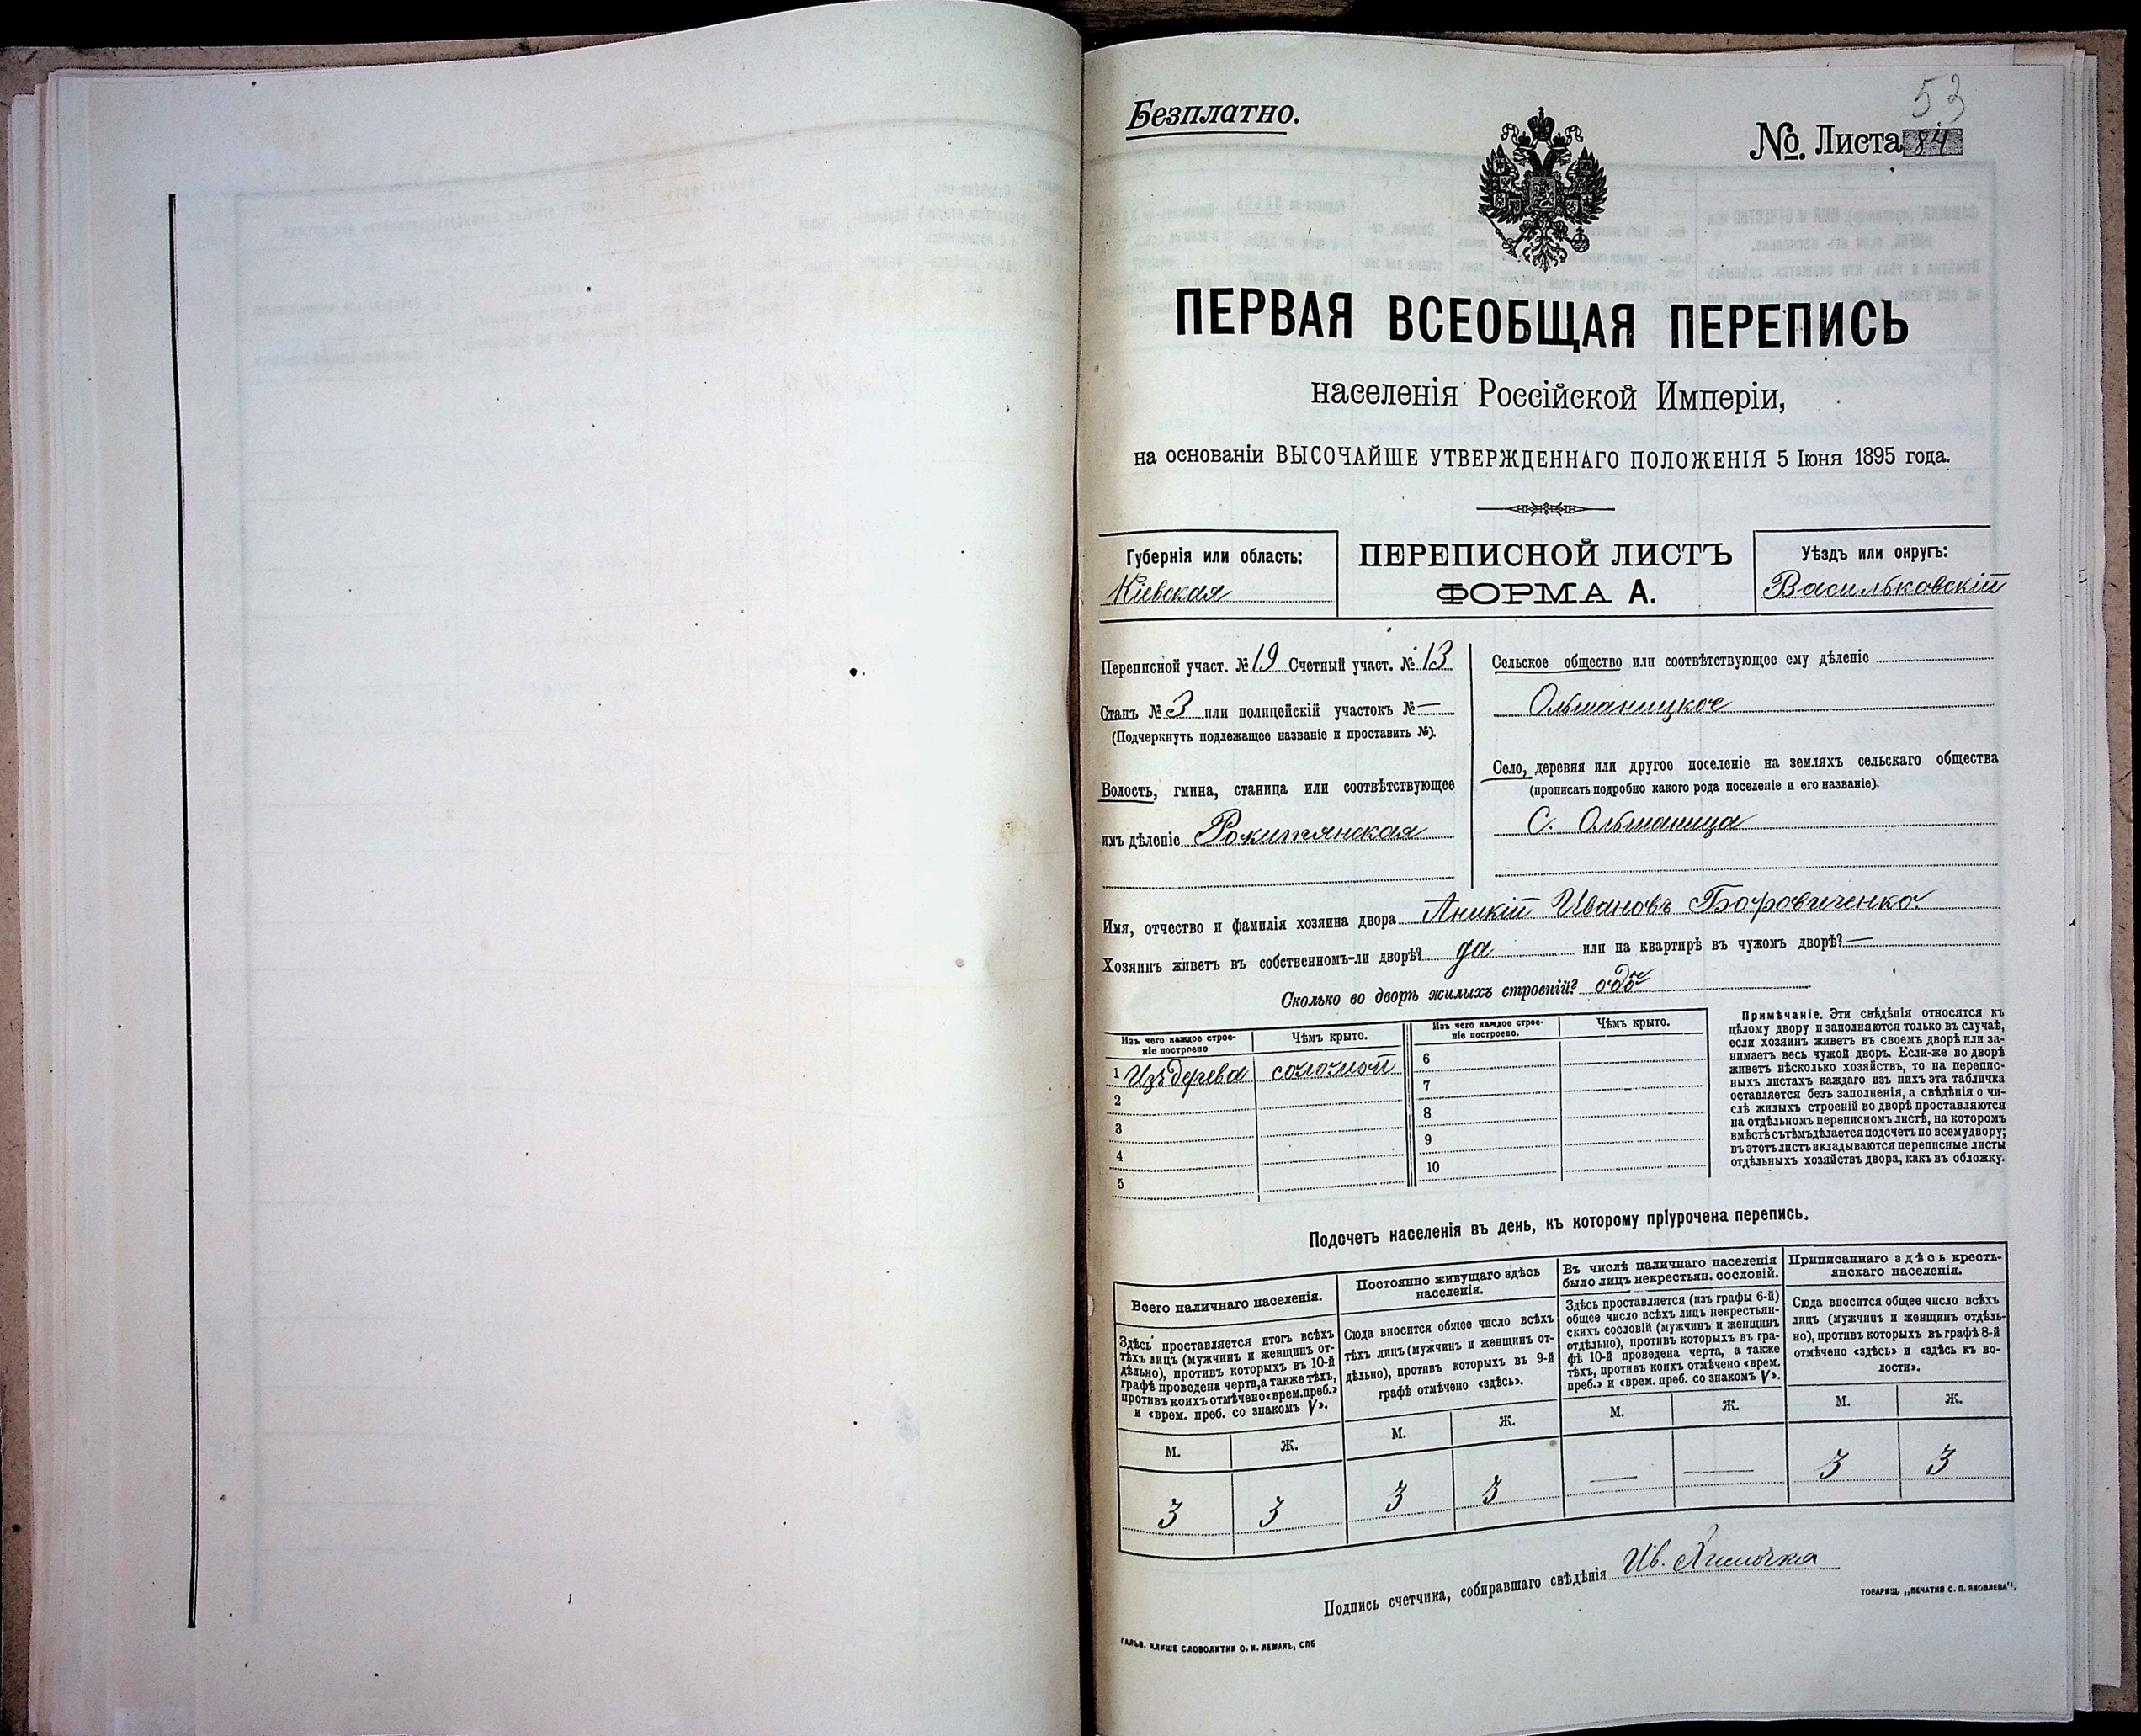 53
Безплатно.
№ Листа 84
ПЕРВАЯ ВСЕОБЩАЯ ПЕРЕПИСЬ
населенія Россійской Имперіи,
на основаніи ВЫСОЧАЙШЕ УТВЕРЖДЕННАГО ПОЛОЖЕНІЯ 5 Іюня 1895 года.
Губернія или область:
Кіевская
ПЕРЕПИСНОЙ ЛИСТЪ
ФОРМА А.
Уѣздъ или округъ:
Васильковскій
Переписной участ. № 19 Счетный участ. № 13
Станъ № 3 или полицейскій участокъ № —
(Подчеркнуть подлежащее названіе и проставить №).
Волость, гмина, станица или соотвѣтствующее
имъ дѣленіе Рокитянская
Сельское общество или соотвѣтствующее ему дѣленіе
Ольшаницкое
Село, деревня или другое поселеніе на земляхъ сельскаго общества
(прописать подробно какого рода поселеніе и его названіе).
С. Ольшаница
Имя, отчество и фамилія хозяина двора Аникій Ивановъ
Хозяинъ живетъ въ собственномъ-ли дворѣ? да или на квартирѣ въ чужомъ дворѣ? —
Сколько во дворѣ жилыхъ строеній?
Изъ чего каждое строе-
ніе построено
Чѣмъ крыто.
1 Изъ дерева соломой
2
3
4
5
Изъ чего каждое строе-
ніе построено.
Чѣмъ крыто.
6
7
8
9
10
Примѣчаніе. Эти свѣдѣнія относятся къ
цѣлому двору и заполняются только въ случаѣ,
если хозяинъ живетъ въ своемъ дворѣ или за-
нимаетъ весь чужой дворъ. Если-же во дворѣ
живетъ нѣсколько хозяйствъ, то на перепис-
ныхъ листахъ каждаго изъ нихъ эта табличка
оставляется безъ заполненія, а свѣдѣнія о чи-
слѣ жилыхъ строеній во дворѣ проставляются
на отдѣльномъ переписномъ листѣ, на которомъ
вмѣстѣ съ тѣмъ дѣлается подсчетъ по всему двору;
въ этотъ листъ вкладываются переписные листы
отдѣльныхъ хозяйствъ двора, какъ въ обложку.
Подсчетъ населенія въ день, къ которому пріурочена перепись.
Всего наличнаго населенія.
Здѣсь проставляется итогъ всѣхъ
тѣхъ лицъ (мужчинъ и женщинъ от-
дѣльно), противъ которыхъ въ 10-й
графѣ проведена черта, а также тѣхъ,
противъ коихъ отмѣчено «врем. преб.»
и «врем. преб. со знакомъ V».
М. Ж.
3 3
Постоянно живущаго здѣсь
населенія.
Сюда вносится общее число всѣхъ
тѣхъ лицъ (мужчинъ и женщинъ от-
дѣльно), противъ которыхъ въ 9-й
графѣ отмѣчено «здѣсь».
М. Ж.
3 3
Въ числѣ наличнаго населенія
было лицъ некрестьян. сословій.
Здѣсь проставляется (изъ графы 6-й)
общее число всѣхъ лицъ некрестьян-
скихъ сословій (мужчинъ и женщинъ
отдѣльно), противъ которыхъ въ гра-
фѣ 10-й проведена черта, а также
тѣхъ, противъ коихъ отмѣчено «врем.
преб.» и «врем. преб. со знакомъ V».
М. Ж.
— —
Приписаннаго здѣсь кресть-
янскаго населенія.
Сюда вносится общее число всѣхъ
лицъ (мужчинъ и женщинъ отдѣль-
но), противъ которыхъ въ графѣ 8-й
отмѣчено «здѣсь» и «здѣсь къ во-
лости».
М. Ж.
3 3
Подпись счетчика, собиравшаго свѣдѣнія Ив.
ТОВАРИЩ. „ПЕЧАТНЯ С. П. ЯКОВЛЕВА“.
ГАЛЬВ. КЛИШЕ СЛОВОЛИТНИ О. И. ЛЕМАНЪ, СПБ